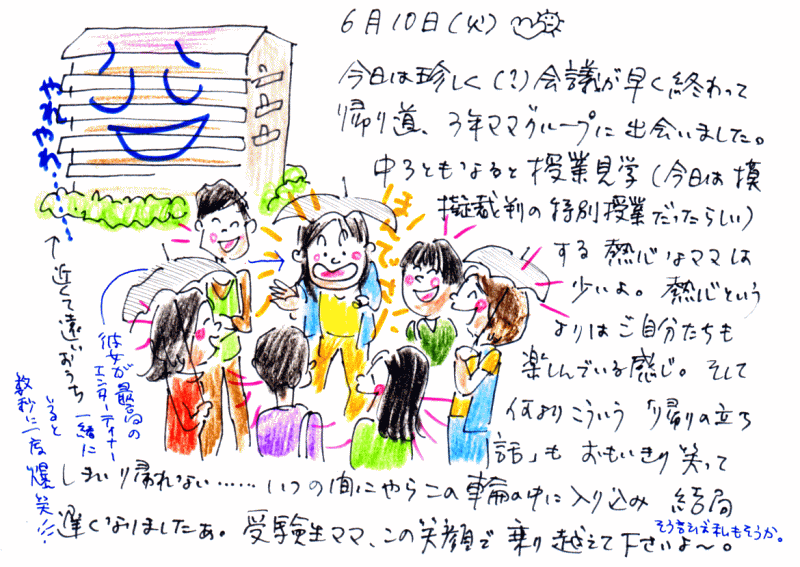 6月10日(火)
今日は珍しく(?)会議が早く終わって
帰り道、3年ママグループに出会いました。
中3ともなると授業見学(今日は模
擬裁判の特別授業だったらしい)
する熱心なママは
少いよ。熱心という
よりはご自分たちも
楽しんでいる感じ。そして
何よりこういう「帰りの立ち
話」もおもいきり笑って
しまい帰れない……いつの間にやらこの輪の中に入り込み 結局
遅くなりましたぁ。受験生ママ、この笑顔で乗り越えて下さいよ〜。
そう言えば私もそうか。
やれやれ…
←近くて遠いおうち
彼女が最高の
エンターティナー
一緒に
いると
数秒に一度爆笑!!